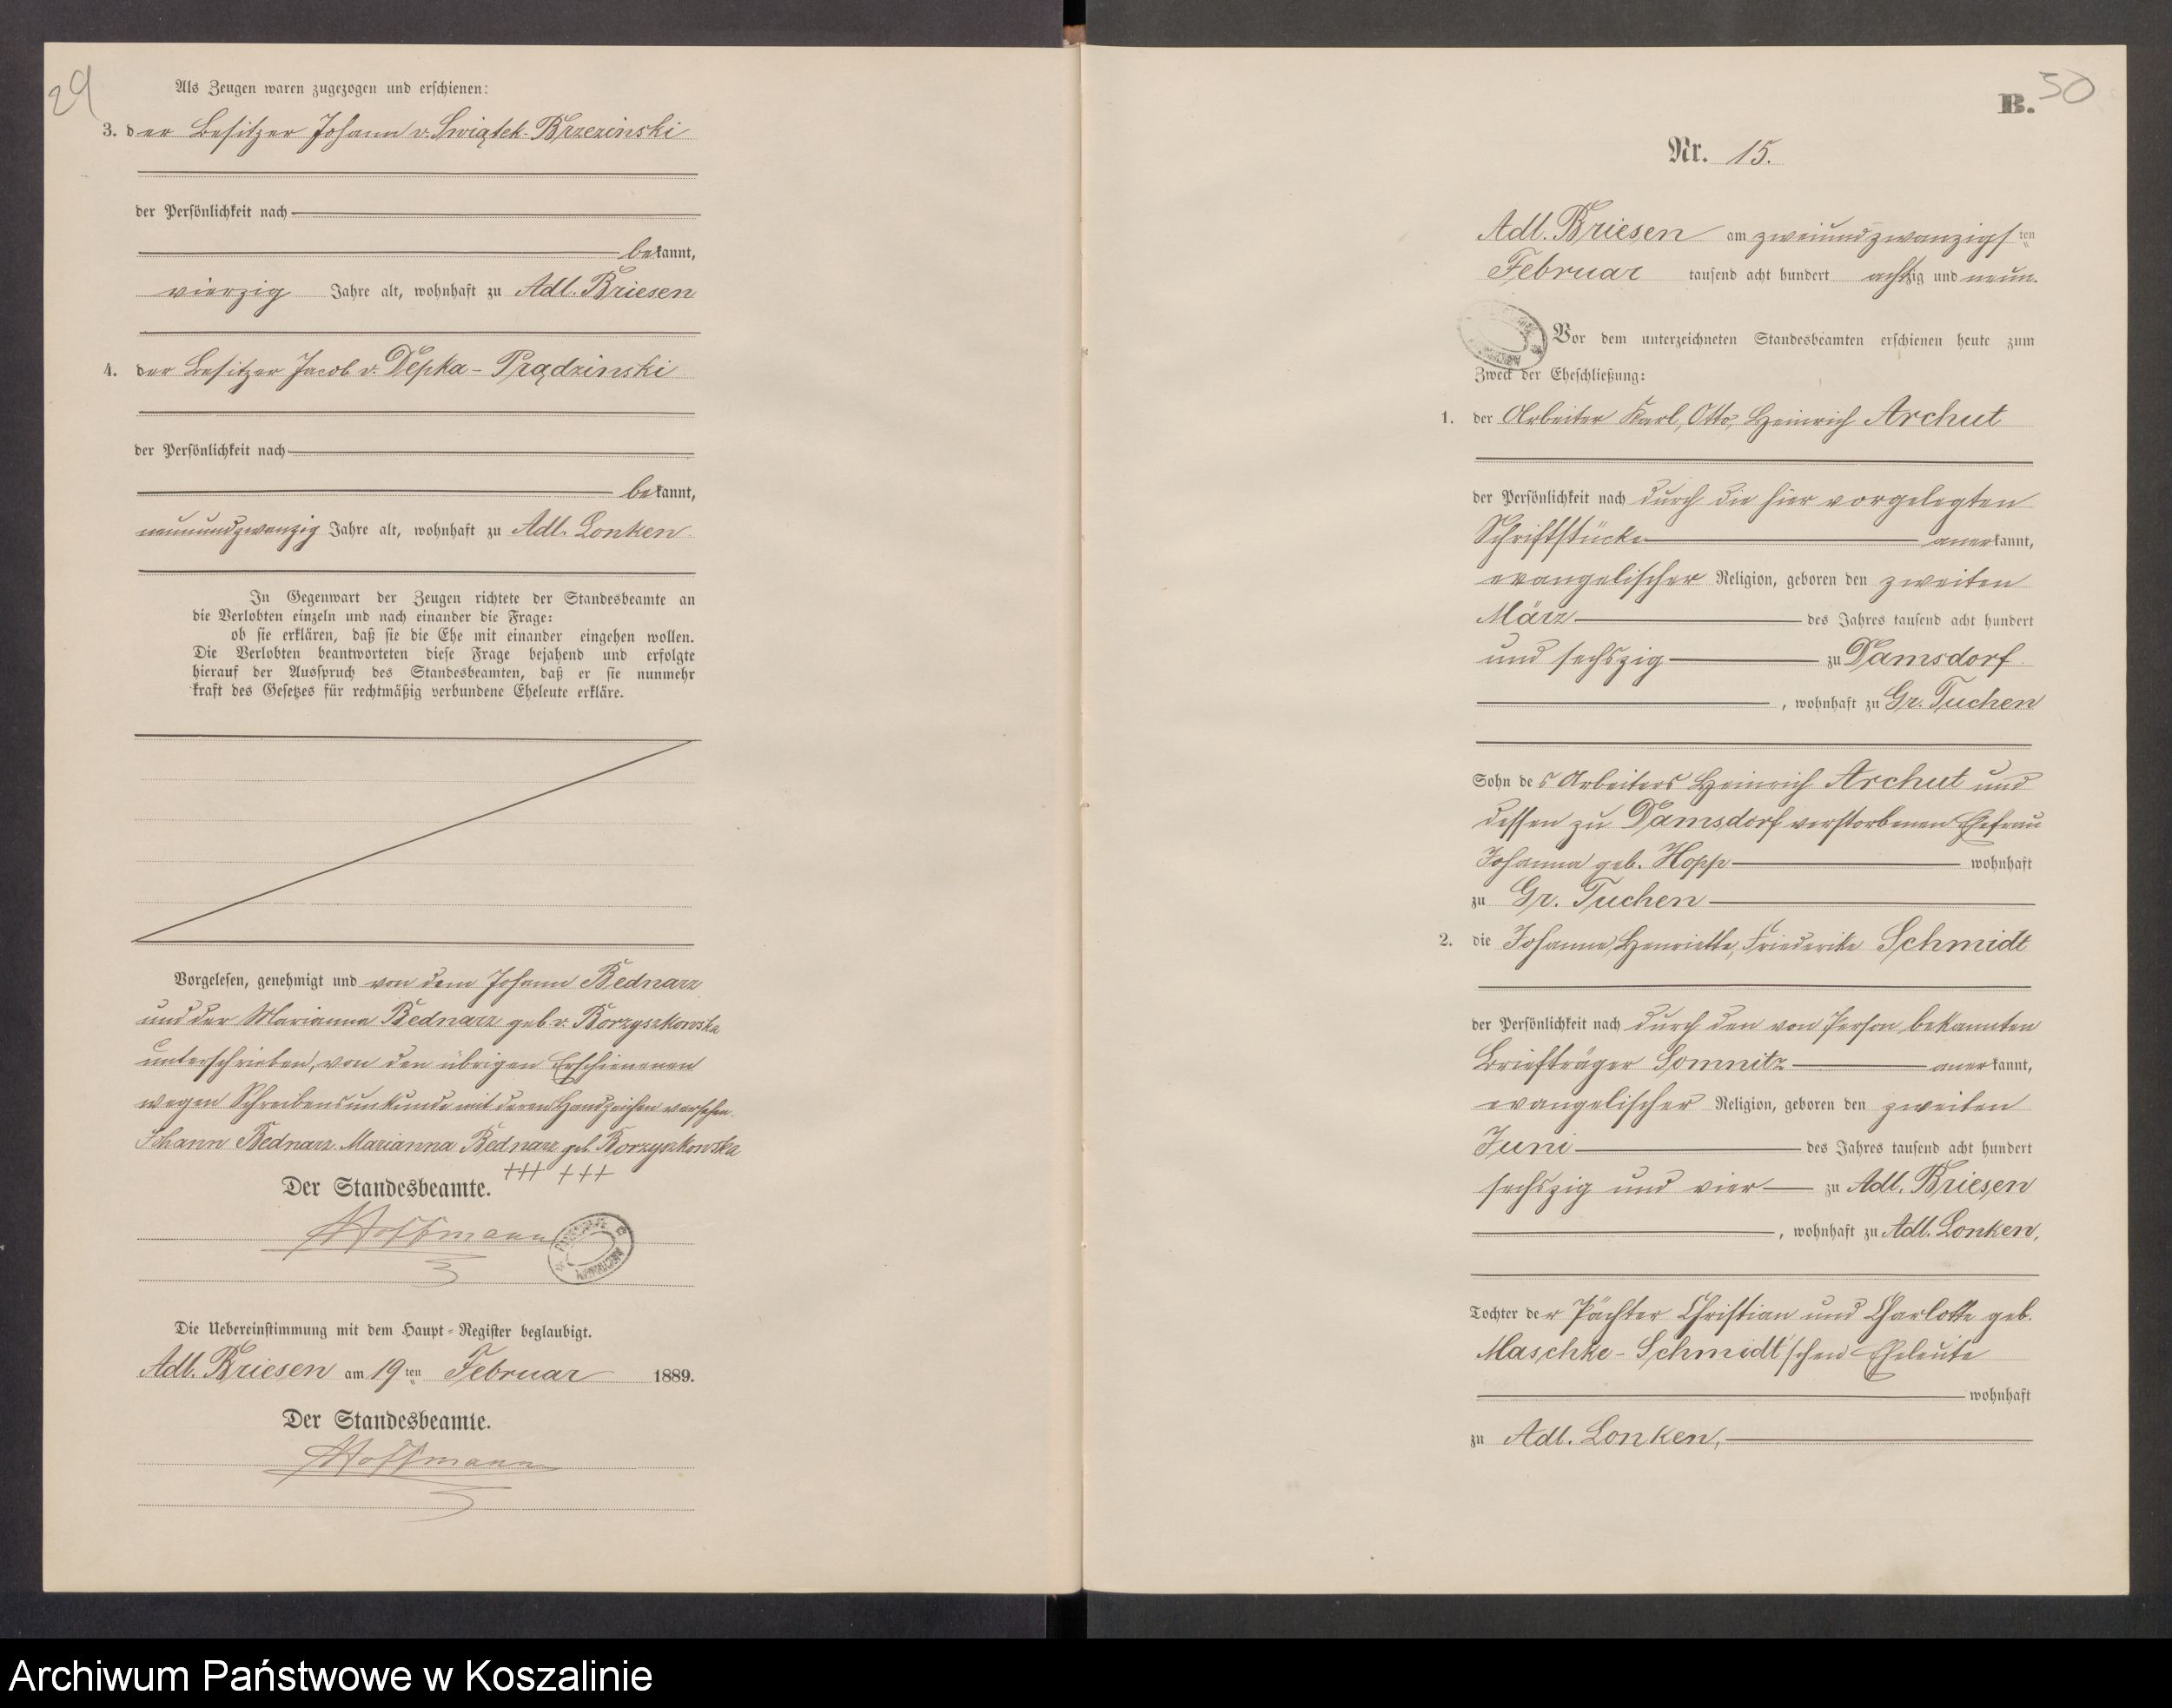 29
Als Zeugen waren zugezogen und erschienen:
3. der Besitzer Johann v. Swiątek-Brzezinski
der Persönlichkeit nach
bekannt,
vierzig Jahre alt, wohnhaft zu Adl. Briesen
4. der Besitzer Jacob v. Depka-Prądzinski
der Persönlichkeit nach
bekannt,
neunundzwanzig Jahre alt, wohnhaft zu Adl. Lonken
In Gegenwart der Zeugen richtete der Standesbeamte an
die Verlobten einzeln und nach einander die Frage:
ob sie erklären, daß sie die Ehe mit einander eingehen wollen.
Die Verlobten beantworteten diese Frage bejahend und erfolgte
hierauf der Ausspruch des Standesbeamten, daß er sie nunmehr
kraft des Gesetzes für rechtmäßig verbundene Eheleute erkläre.
Vorgelesen, genehmigt und von dem Johann Bednarz
und der Marianna Bednarz geb. v. Borzyszkowska
unterschrieben, von den übrigen Erschienenen
wegen Schreibensunkunde mit deren Handzeichen versehen.
Johann Bednarz. Marianna Bednarz geb. Borzyszkowska
+++ +++
Der Standesbeamte.
Hoffmann
Die Uebereinstimmung mit dem Haupt-Register beglaubigt.
Adl. Briesen am 19ten Februar 1889.
Der Standesbeamte.
Hoffmann
50
B.
Nr. 15.
Adl. Briesen am zweiundzwanzigsten
Februar tausend acht hundert achtzig und neun.
Vor dem unterzeichneten Standesbeamten erschienen heute zum
Zweck der Eheschließung:
1. der Arbeiter Karl, Otto, Heinrich Archut
der Persönlichkeit nach durch die hier vorgelegten
Schriftstücke anerkannt,
evangelischer Religion, geboren den zweiten
März des Jahres tausend acht hundert
und sechszig zu Damsdorf
, wohnhaft zu Gr. Tuchen
Sohn des Arbeiters Heinrich Archut und
dessen zu Damsdorf verstorbenen Ehefrau
Johanna geb. Hopp wohnhaft
zu Gr. Tuchen
2. die Johanne, Henriette, Friederike Schmidt
der Persönlichkeit nach durch den von Person bekannten
Briefträger Somnitz anerkannt,
evangelischer Religion, geboren den zweiten
Juni des Jahres tausend acht hundert
sechszig und vier zu Adl. Briesen
, wohnhaft zu Adl. Lonken,
Tochter der Pächter Christian und Charlotte geb.
Maschke-Schmidt'schen Eheleute
wohnhaft
zu Adl. Lonken,
Archiwum Państwowe w Koszalinie